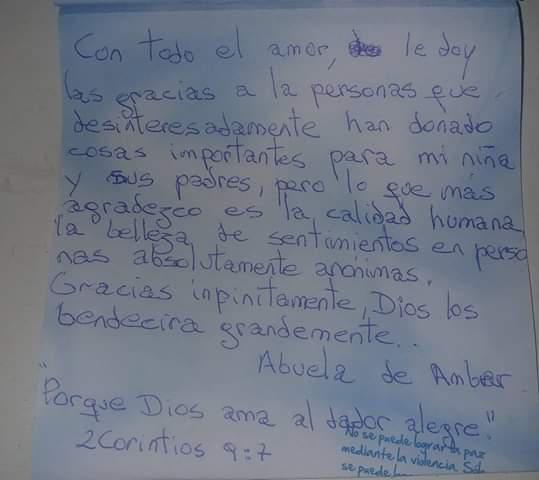 Con todo el amor, le doy
las gracias a la personas que
desinteresadamente han donado
cosas importantes para mi niña
y sus padres, pero lo que más
agradezco es la calidad humana
la belleza de sentimientos en perso
nas absolutamente anónimas.
Gracias inpinitamente, Dios los
bendecira grandemente..
Abuela de Ambar
"Porque Dios ama al dador alegre."
2 Corintios 9:7
No se puede lograr la paz
mediante la violencia. Sól
se puede l